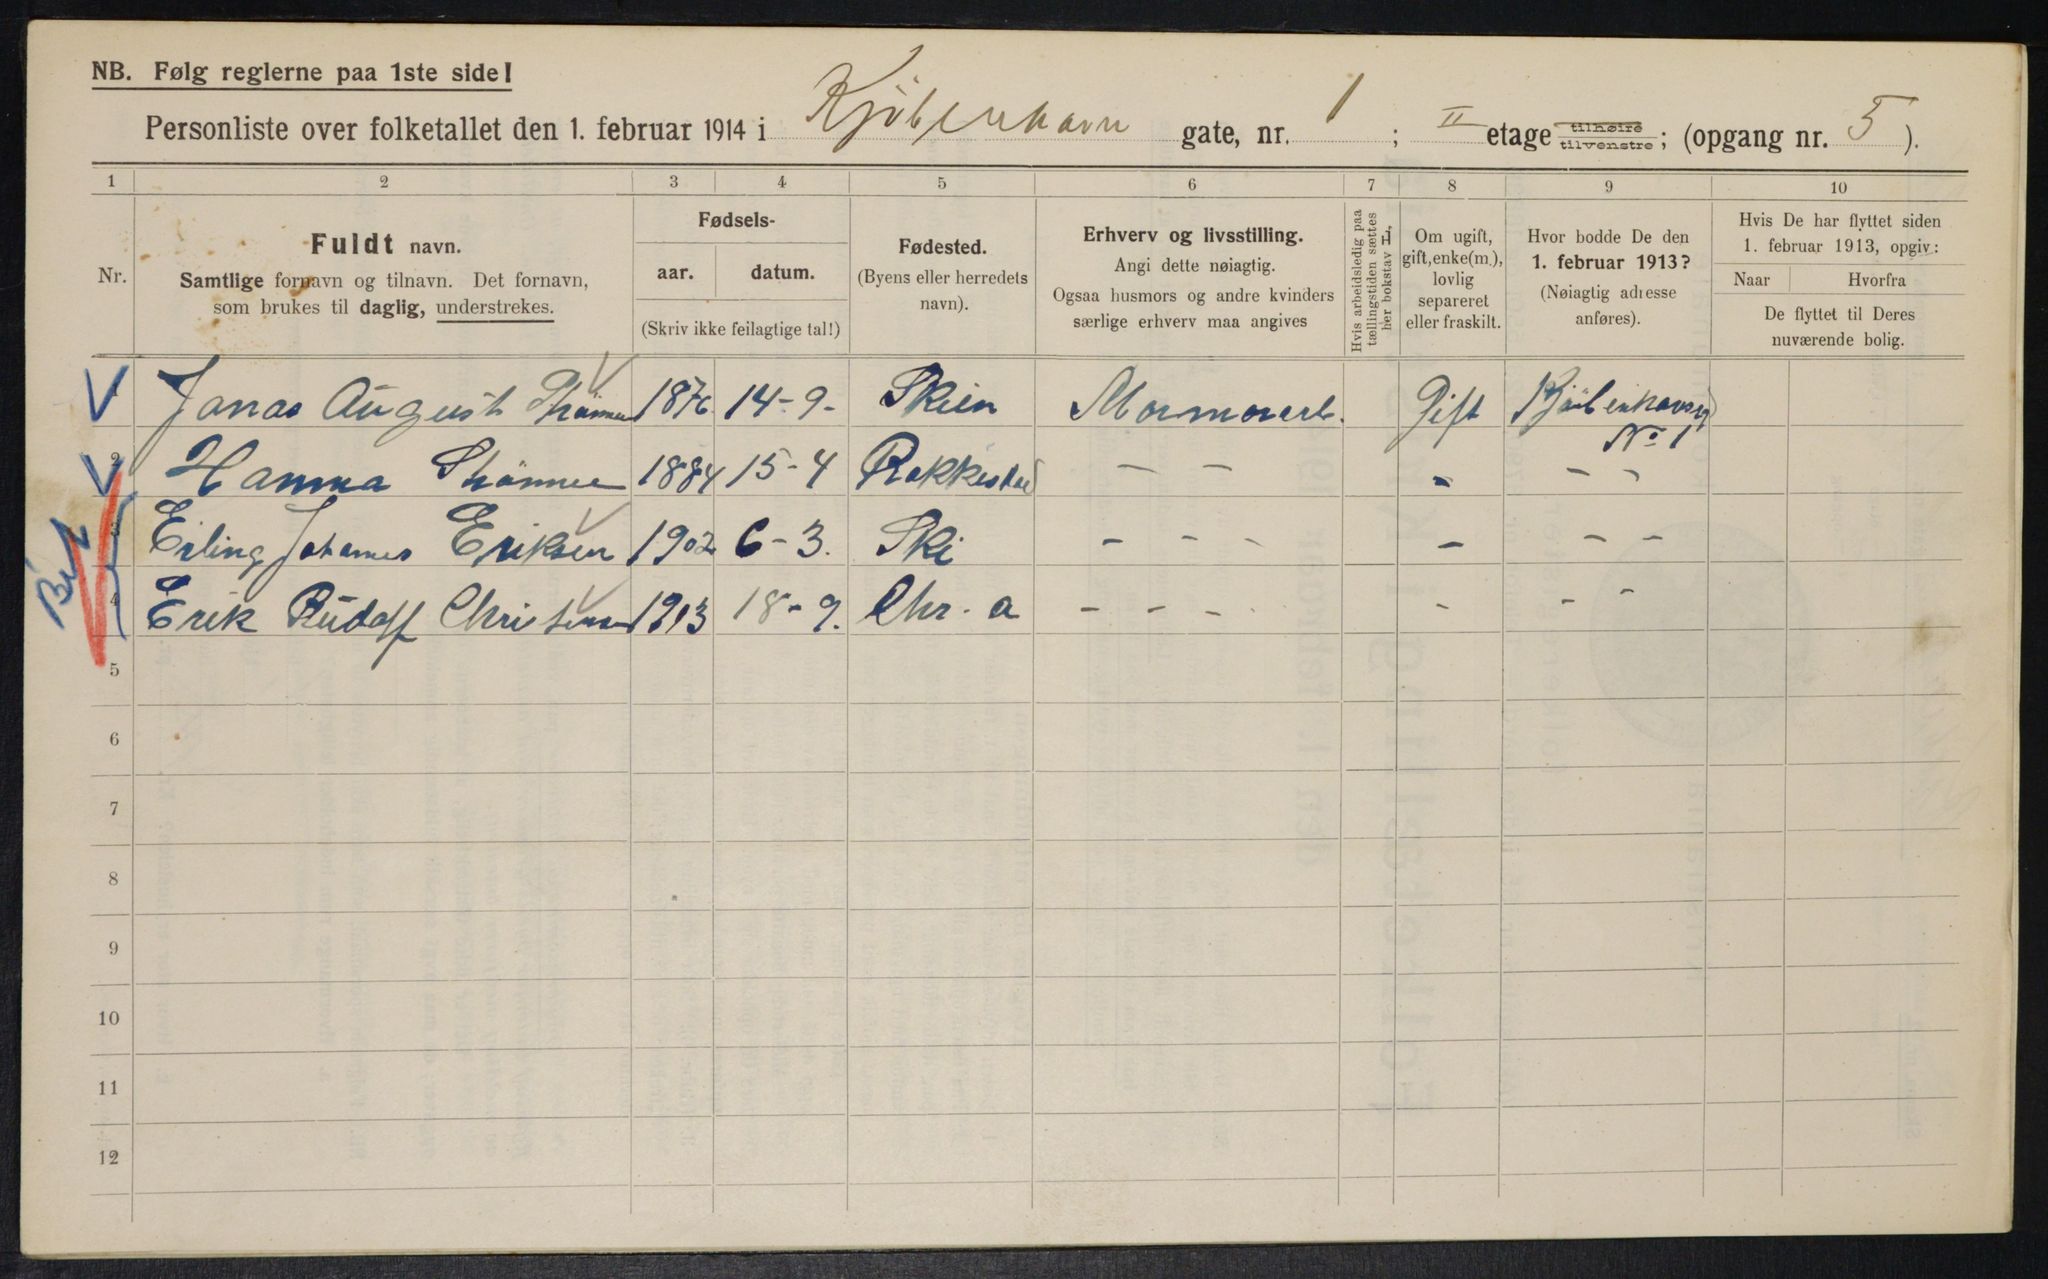 NB. Følg reglerne paa 1ste side!
Personliste over folketallet den 1. februar 1914 i Kjøbenhavn gate, nr. 1 ; II etage tilhøire tilvenstre ; (opgang nr. 5 ).
1 2 3 4 5 6 7 8 9 10
Nr.
Fuldt navn.
Samtlige fornavn og tilnavn. Det fornavn,
som brukes til daglig, understrekes.
Fødsels-
aar. datum.
(Skriv ikke feilagtige tal!)
Fødested.
(Byens eller herredets
navn).
Erhverv og livsstilling.
Angi dette nøiagtig.
Ogsaa husmors og andre kvinders
særlige erhverv maa angives
Hvis arbeidsledig paa
tællingstiden sættes
her bokstav L.
Om ugift,
gift, enke(m.),
lovlig
separeret
eller fraskilt.
Hvor bodde De den
1. februar 1913?
(Nøiagtig adresse
anføres).
Hvis De har flyttet siden
1. februar 1913, opgiv:
Naar Hvorfra
De flyttet til Deres
nuværende bolig.
1 Jonas August 1876 14-9- Skien Marmorarb. Gift Kjøbenhavnsg
No 1
2 Hanna 1884 15-4 Rakkestad - - - - -
3 Erling Johannes Eriksen 1902 6-3. Ski - - - - - -
4 Erik Rudolf Christensen 1913 18-9. Chr. a - - - - - -
5
6
7
8
9
10
11
12